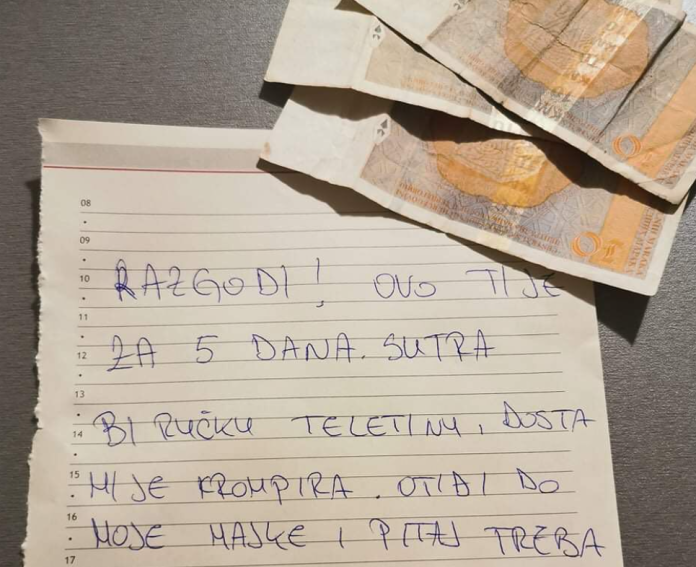 08
09
10 RAZGODI! OVO TI JE
11
12 ZA 5 DANA. SUTRA
13
14 BI RUČKU TELETINU, DOSTA
15 MI JE KROMPIRA. OTIĐI DO
16 MOJE MAJKE I PITAJ TREBA
17